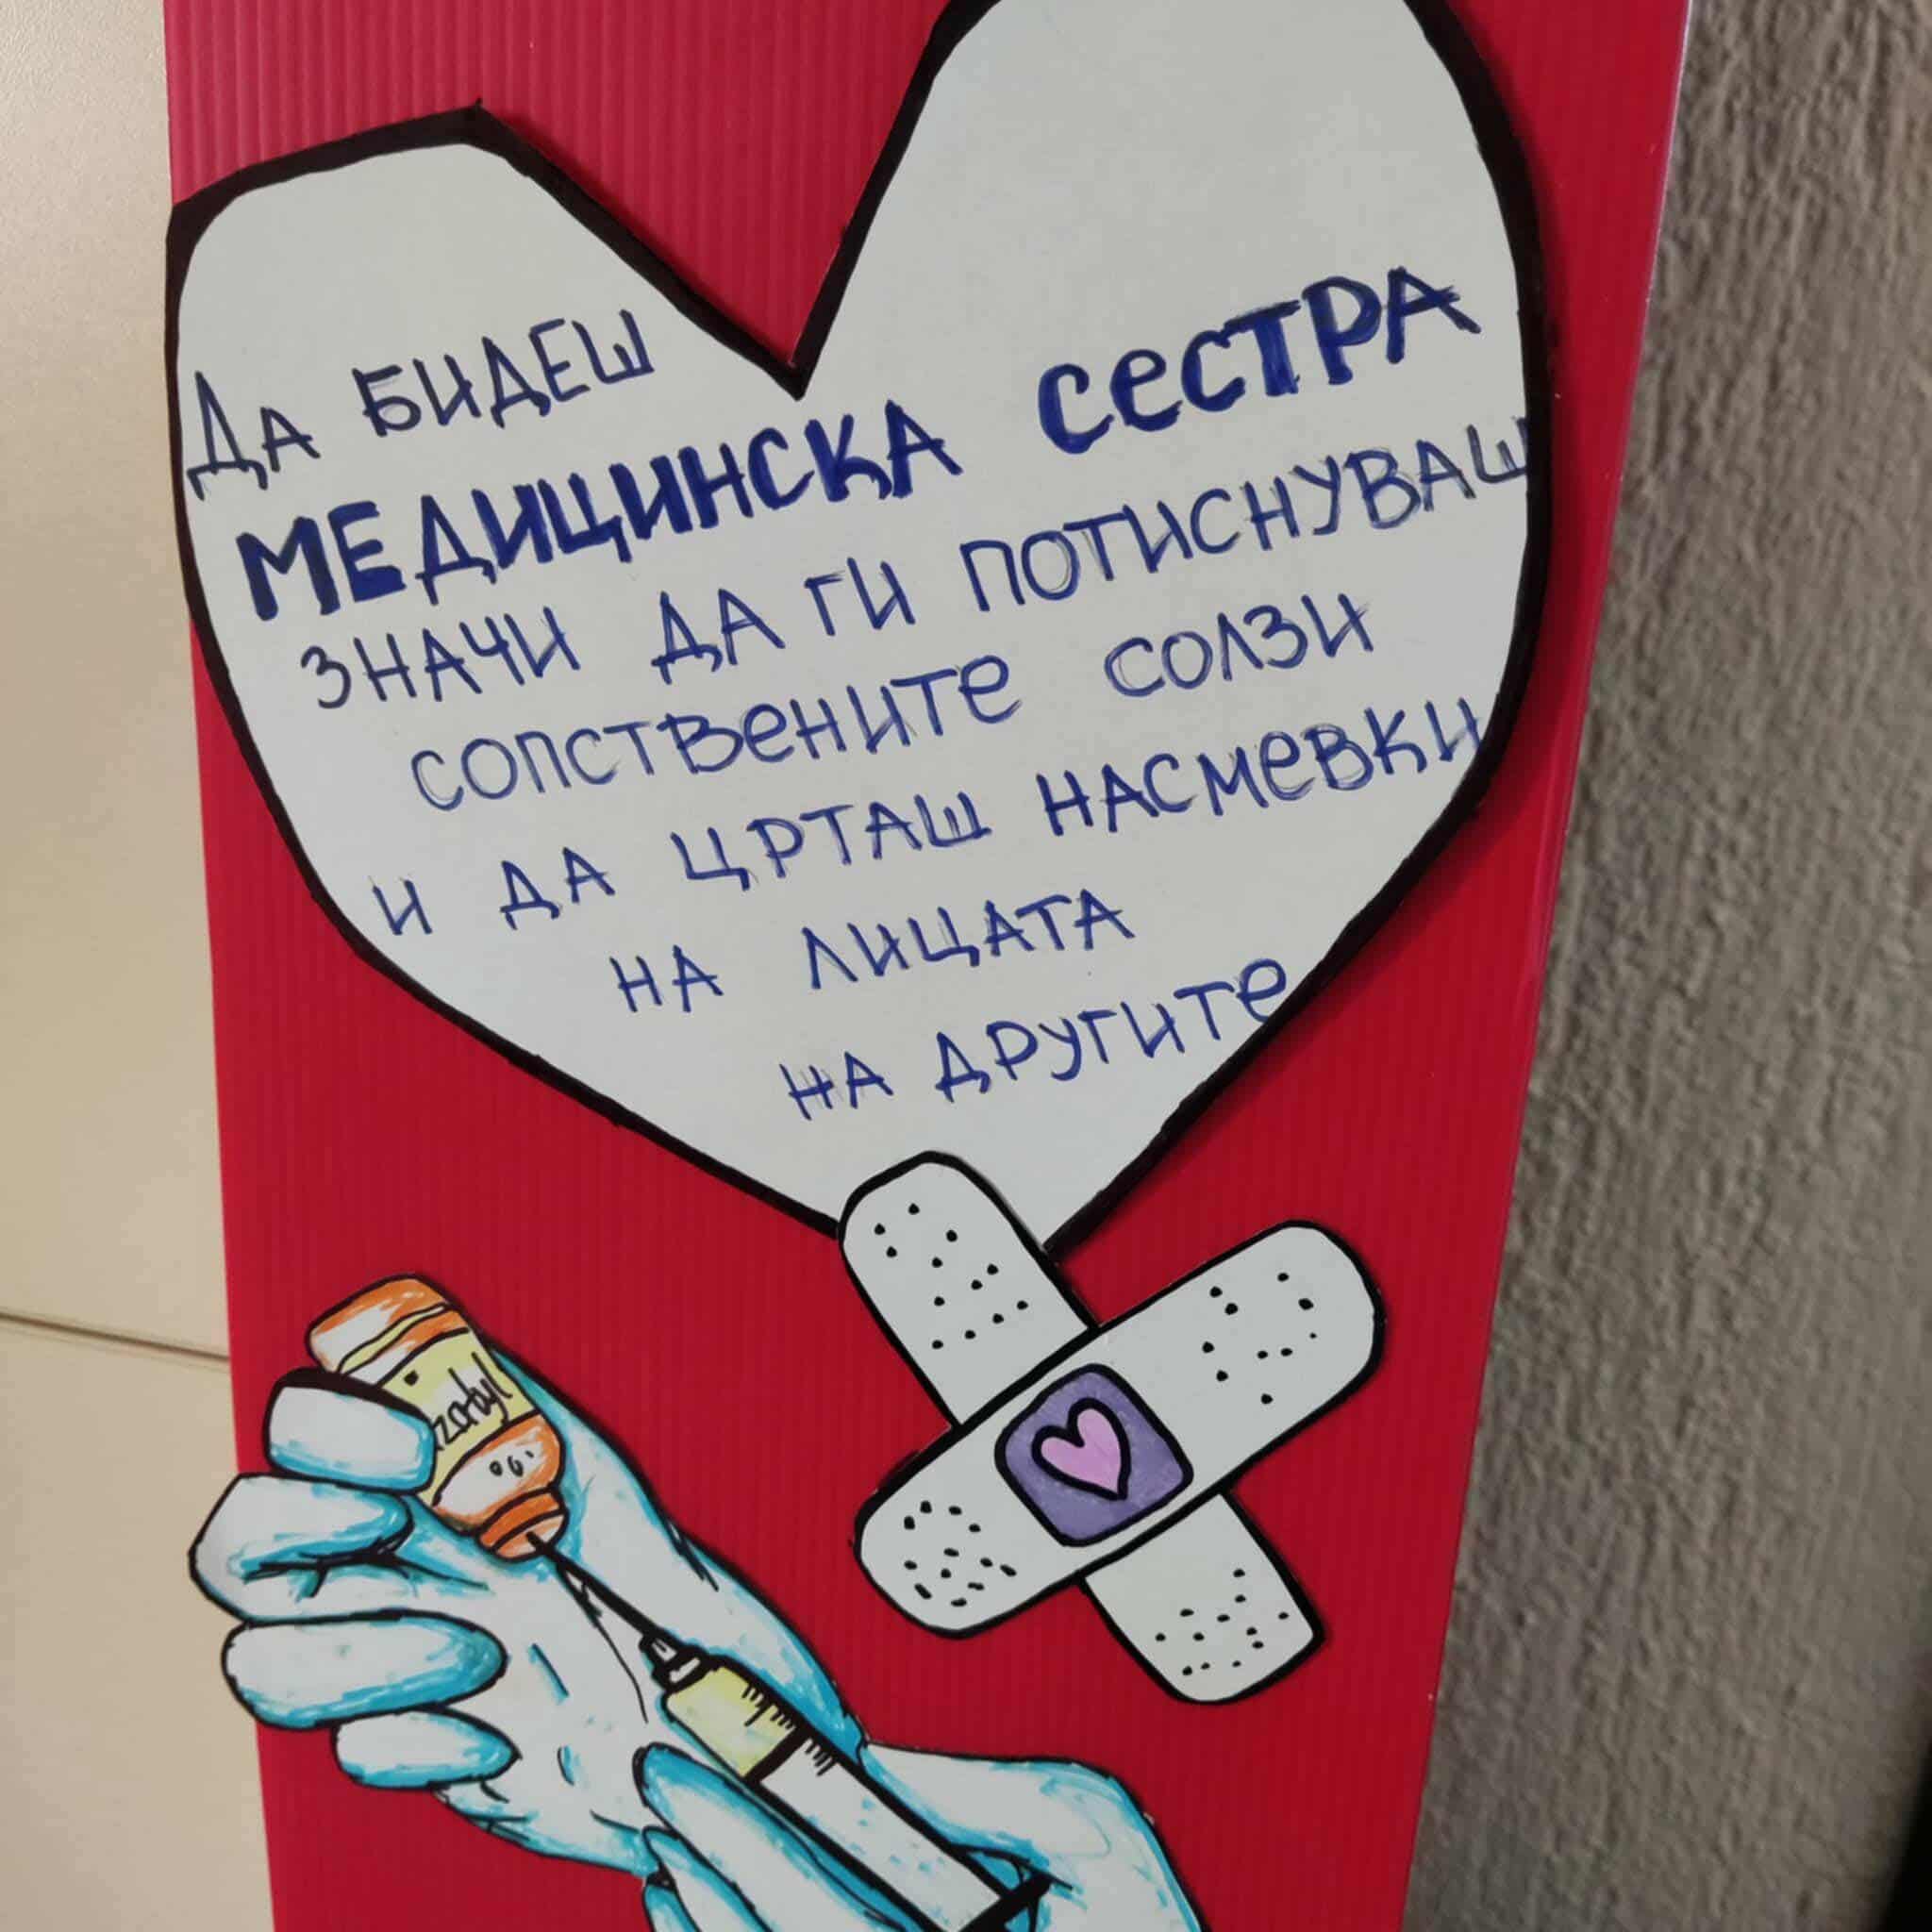 Да БИДЕШ
МЕДИЦИНСКА СЕСТРА
ЗНАЧИ ДА ГИ ПОТИСНУВАШ
СОПСТВЕНИТЕ СОЛЗИ
И ДА ЦРТАШ НАСМЕВКИ
НА ЛИЦАТА
НА ДРУГИТЕ